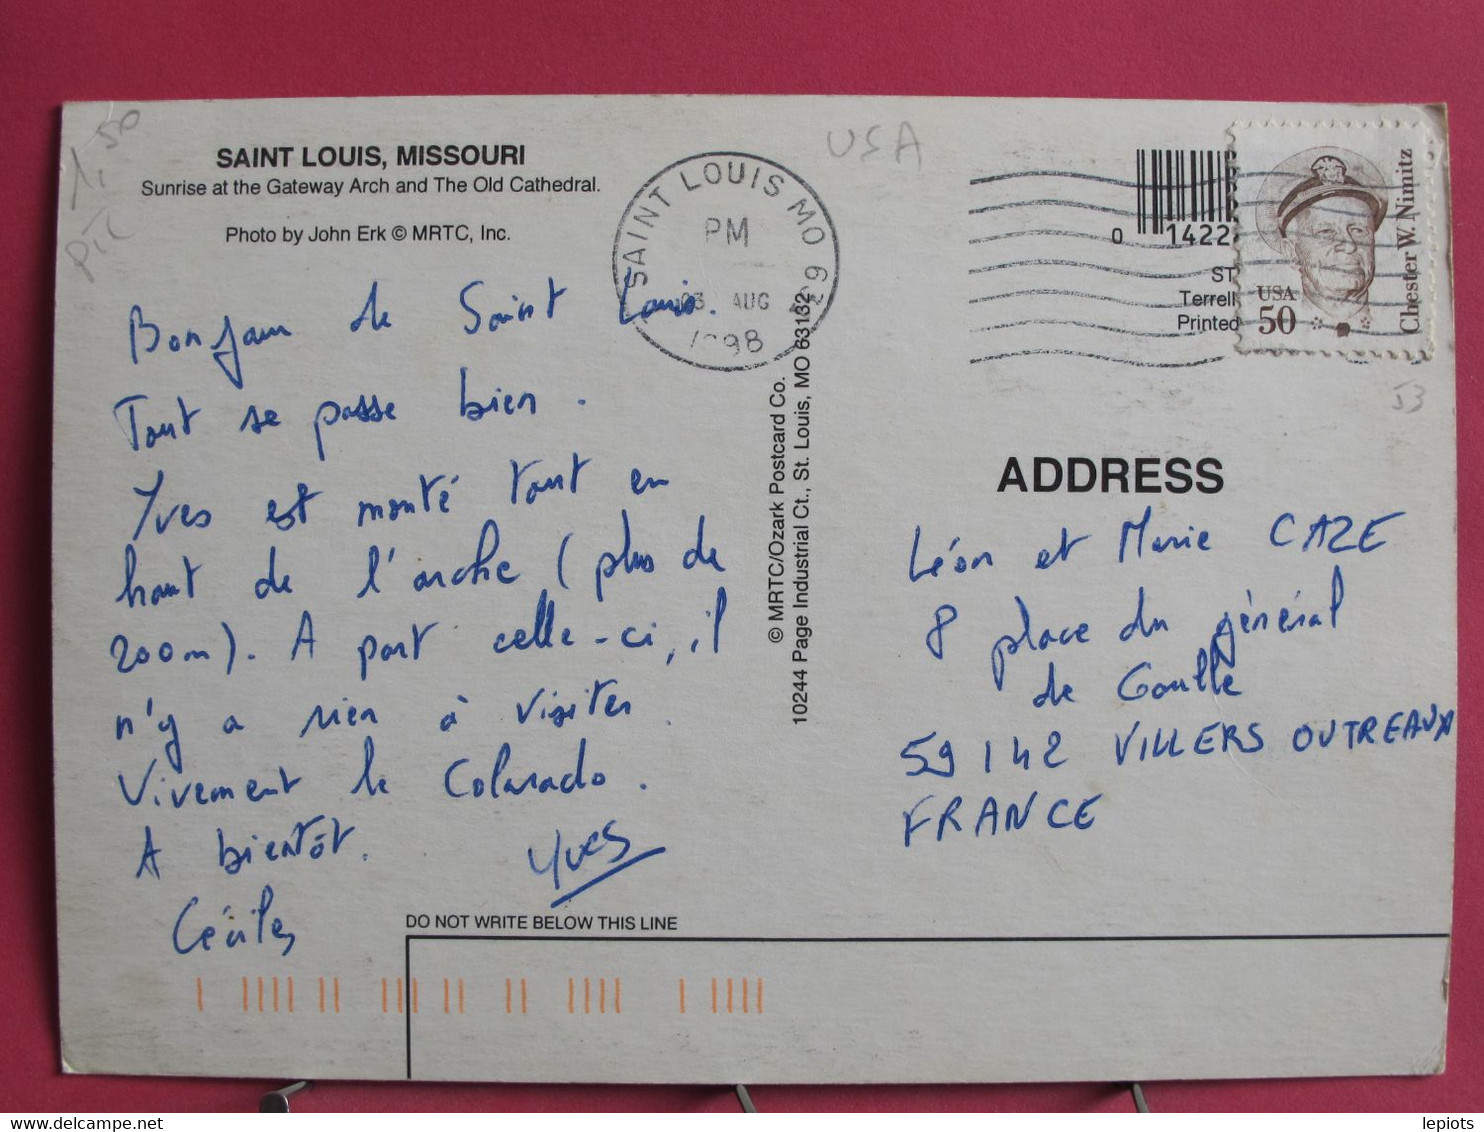 1,50
PTC
USA
SAINT LOUIS, MISSOURI
Sunrise at the Gateway Arch and The Old Cathedral.
Photo by John Erk © MRTC, Inc.
Bonjour de Saint Louis.
Tout se passe bien.
Yves est monté tout en
haut de l'arche (plus de
200m). A part celle-ci, il
n'y a rien à visiter.
Vivement le Colorado.
A bientôt.
Yves
Cécile
SAINT LOUIS MO
PM
03 AUG
1998
© MRTC/Ozark Postcard Co.
10244 Page Industrial Ct., St. Louis, MO 63132
0 1422
ST
Terrell
Printed
USA
50
Chester W. Nimitz
53
ADDRESS
Léon et Marie CAZE
8 place du général
de Gaulle
59142 VILLERS OUTREAUX
FRANCE
DO NOT WRITE BELOW THIS LINE
lepiots